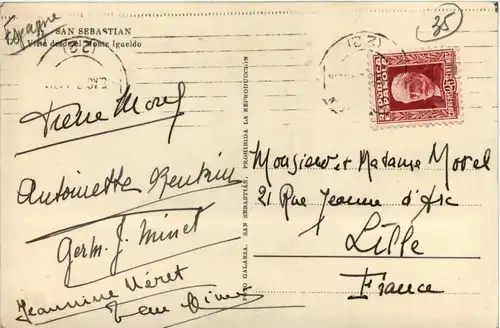 Espagne
SAN SEBASTIAN
Vista desde el Monte Igueldo
35
REPUBLICA
ESPAÑOLA
Irène Morel
Antoinette
Germ. J. Minet
Jeannine Méret
FOTO GALARZA. SAN SEBASTIÁN. PROHIBIDA LA REPRODUCCIÓN
Monsieur et Madame Morel
21 Rue Jeanne d'Arc
Lille
France